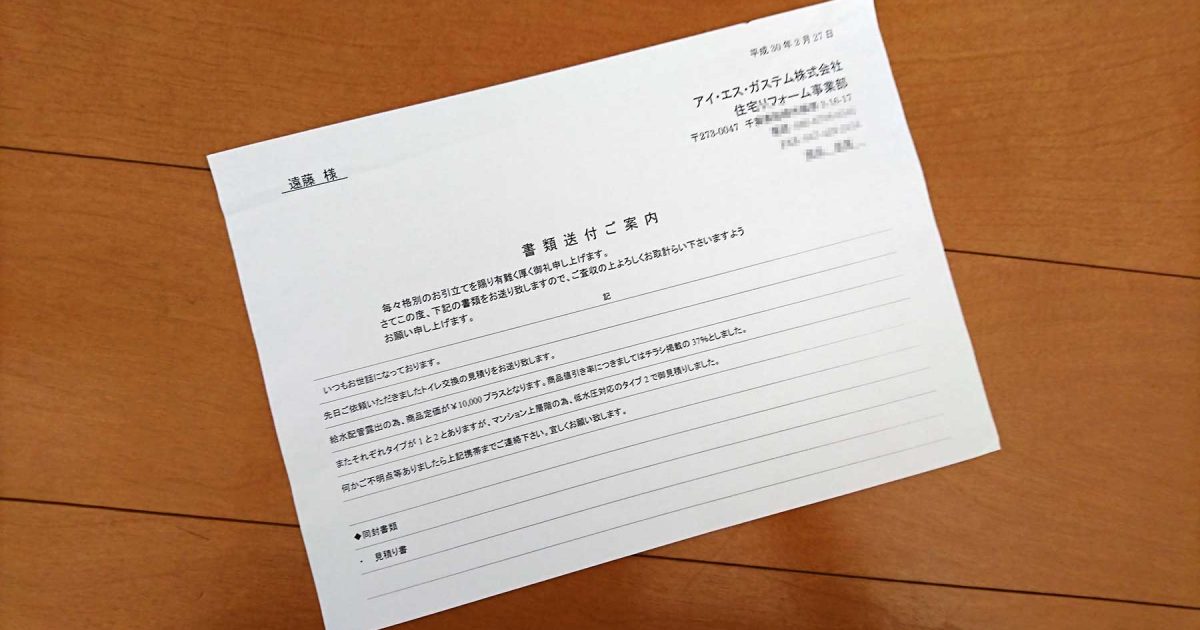 平成30年2月27日
アイ・エス・ガステム株式会社
住宅リフォーム事業部
〒273-0047 千
遠藤 様
書類送付ご案内
毎々格別のお引立てを賜り有難く厚く御礼申し上げます。
さてこの度、下記の書類をお送り致しますので、ご査収の上よろしくお取計らい下さいますよう
お願い申し上げます。
記
いつもお世話になっております。
先日ご依頼いただきましたトイレ交換の見積りをお送り致します。
給水配管露出の為、商品定価が¥10,000プラスとなります。商品値引き率につきましてはチラシ掲載の37%としました。
またそれぞれタイプが1と2とありますが、マンション上層階の為、低水圧対応のタイプ2で御見積りしました。
何かご不明点等ありましたら上記携帯までご連絡下さい。宜しくお願い致します。
◆同封書類
・ 見積り書